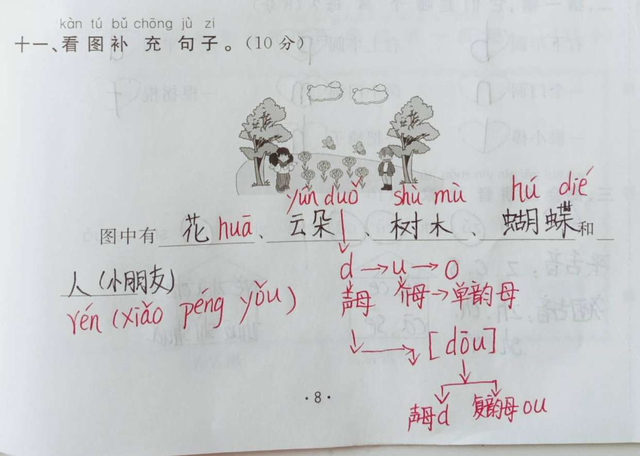 kàn tú bǔ chōng jù zi
十一、看图补充句子。(10分)
yún duǒ shù mù hú dié
图中有 花 huā 、云朵、树木、蝴蝶和
人(小朋友)
rén (xiǎo péng yǒu)
d→u→o
声母 介母→单韵母
[dōu]
声母d 复韵母ou
·8·